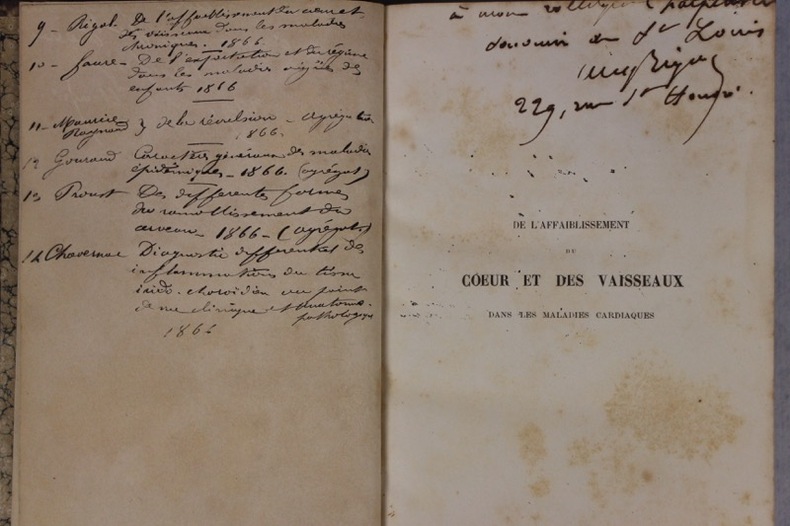 9 - Rigal De l'affaiblissement du cœur et
des vaisseaux dans les maladies
chroniques. 1866
10 - faure - De l'expectation et du régime
dans les maladies aigües des
enfants 1866
11 - Maurice Raynaud } de la révulsion - agrégation
1866.
12 Gouraud Caractères généraux des maladies
épidémiques - 1866. (agrégat)
13 Proust Des différentes formes
du ramollissement du
cerveau 1866 - (agrégat)
14 Chavernac Diagnostic différentiel des
inflammations du tissu
irido-choroïdien au point
de vue clinique et anatomo-
pathologique
1866
à mon collègue
souvenir de St Louis
Rigal
229, rue St Honoré.
DE L'AFFAIBLISSEMENT
DU
COEUR ET DES VAISSEAUX
DANS LES MALADIES CARDIAQUES